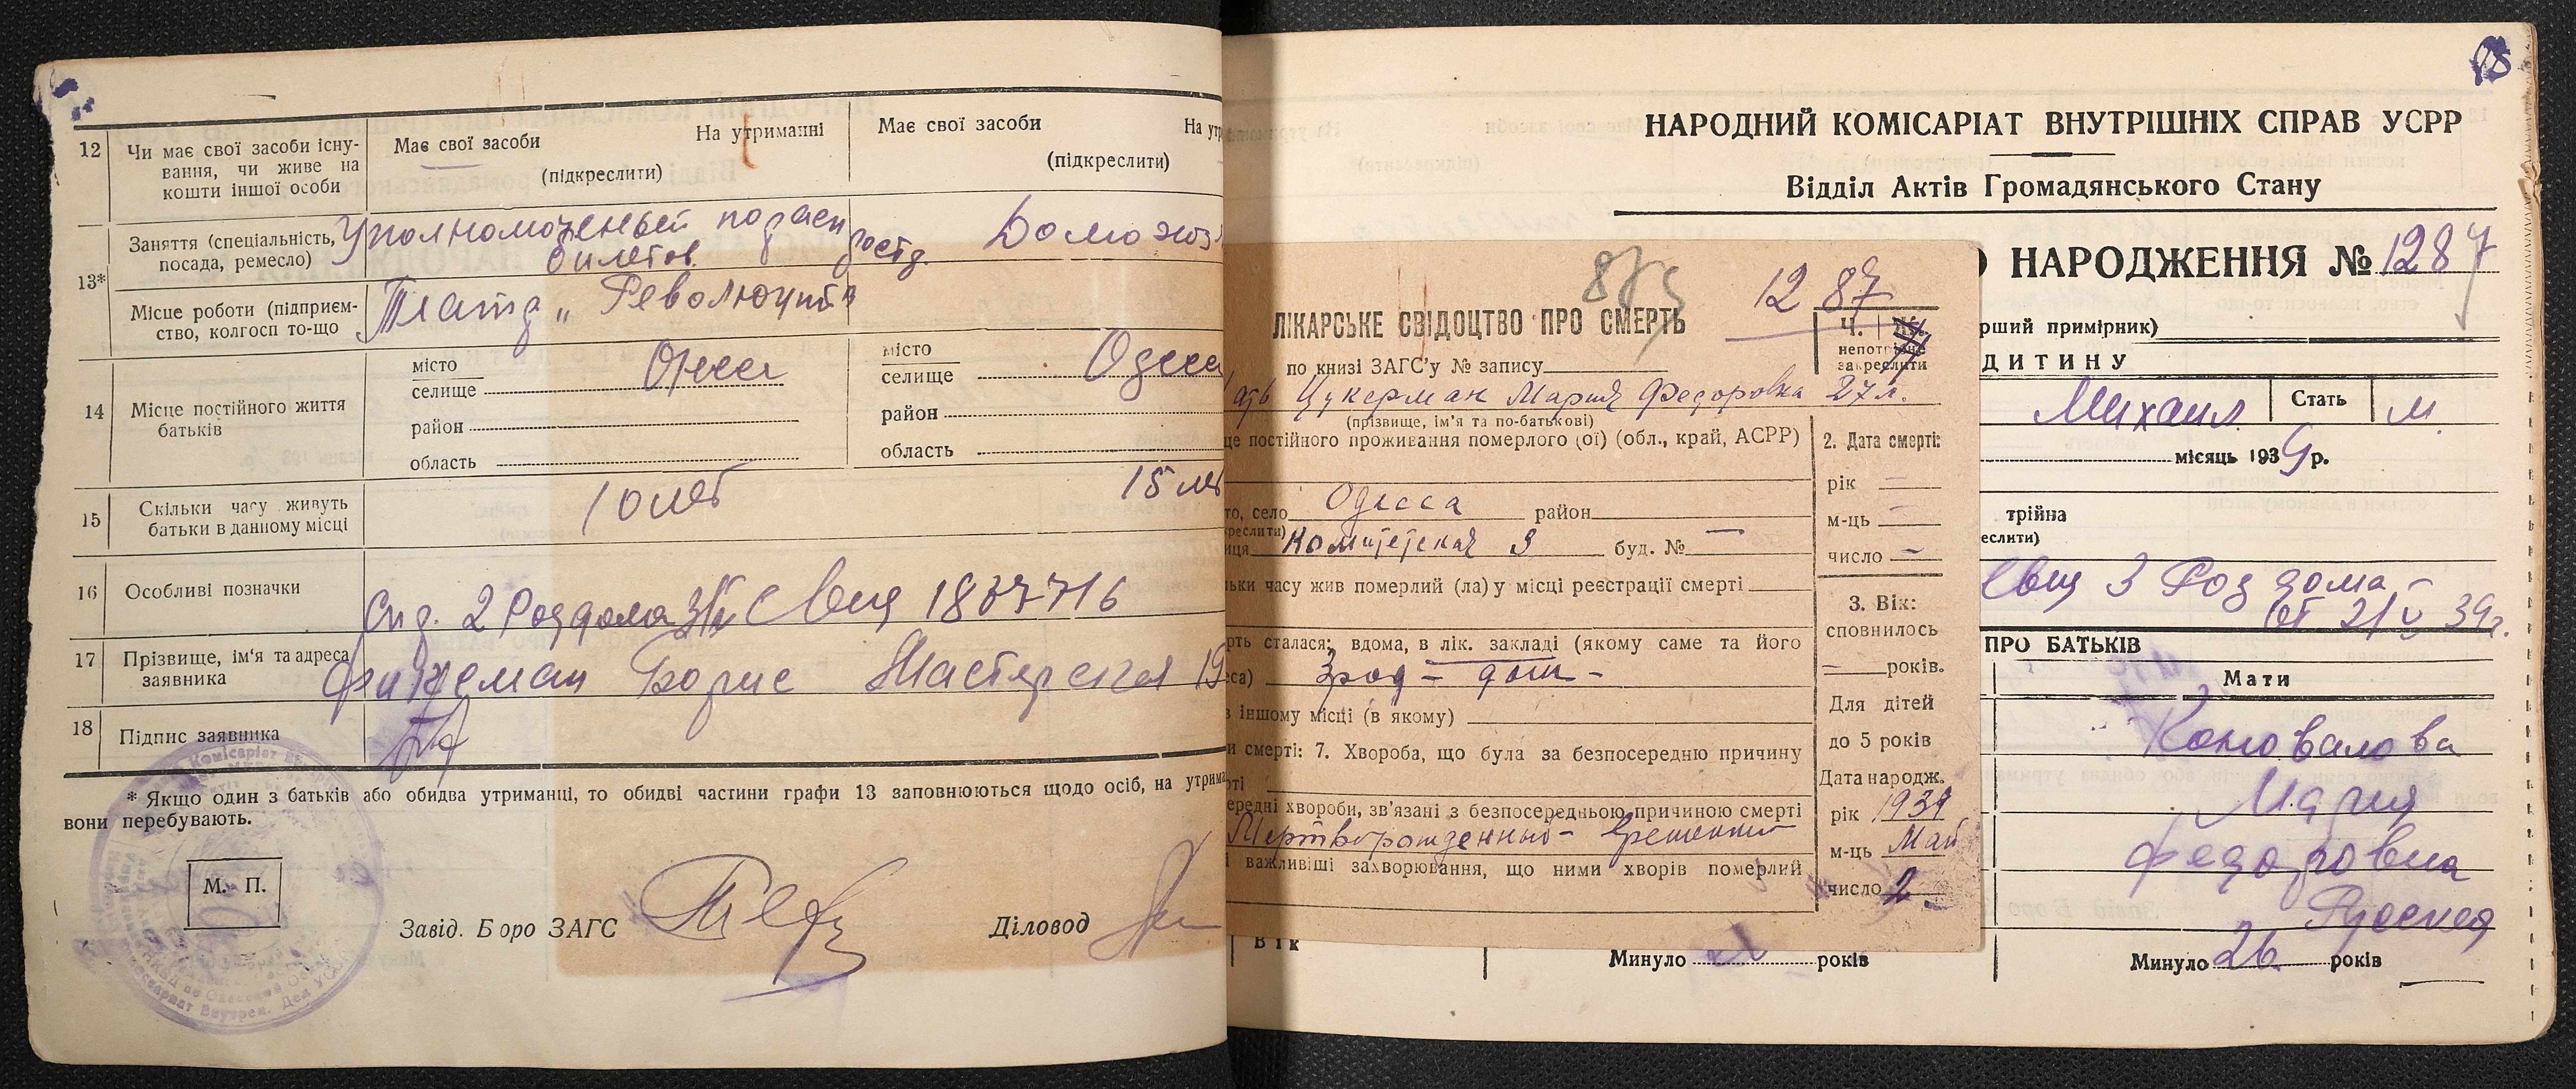 12
Чи має свої засоби існу-
вання, чи живе на
кошти іншої особи
Має свої засоби
На утриманні
(підкреслити)
Має свої засоби
На ут
(підкреслити)
13*
Заняття (спеціальність,
посада, ремесло)
билетов
Місце роботи (підприєм-
ство, колгосп то-що
„ Революции"
14
Місце постійного життя
батьків
місто
селище
Одесса
район
область
місто
селище
Одесса
район
область
15
Скільки часу живуть
батьки в данному місці
10 лет
15 лет
16
Особливі позначки
17
Прізвище, ім'я та адреса
заявника
Борис
Мастерская 19
18
Підпис заявника
* Якщо один з батьків або обидва утриманці, то обидві частини графи 13 заповнюються щодо осіб, на утрима
вони перебувають.
М. П.
Завід. Бюро ЗАГС
Діловод
НАРОДНИЙ КОМІСАРІАТ ВНУТРІШНІХ СПРАВ УСРР
Відділ Актів Громадянського Стану
О НАРОДЖЕННЯ № 1287
рший примірник)
ДИТИНУ
Михаил
Стать
м.
місяць 1939 р.
трійна
еслити)
3 Род дома
от 21 V 39 г.
ПРО БАТЬКІВ
Мати
Коновалова
Мария
Федоровна
Русская
Вік
Минуло
років
Минуло 26 років
1287
ЛІКАРСЬКЕ СВІДОЦТВО ПРО СМЕРТЬ
Ч. Ж.
непотрібне
закреслити
по книзі ЗАГС'у № запису
Цукерман Мария Федоровна 27 л.
(прізвище, ім'я та по-батькові)
це постійного проживання померлого (ої) (обл., край, АСРР)
то, село Одесса район
реслити)
иця Комитетская 3 буд. № —
льки часу жив померлий (ла) у місці реєстрації смерті
рть сталася: вдома, в лік. закладі (якому саме та його
еса) 3 род - дом -
в іншому місці (в якому)
и смерті: 7. Хвороба, що була за безпосередню причину
рті
ередні хвороби, зв'язані з безпосередньою причиною смерті
Мертворожденный -
і важливіші захворювання, що ними хворів померлий
2. Дата смерті:
рік —
м-ць —
число —
3. Вік:
сповнилось
— років.
Для дітей
до 5 років
Дата народж.
рік 1939
м-ць Май
число 2